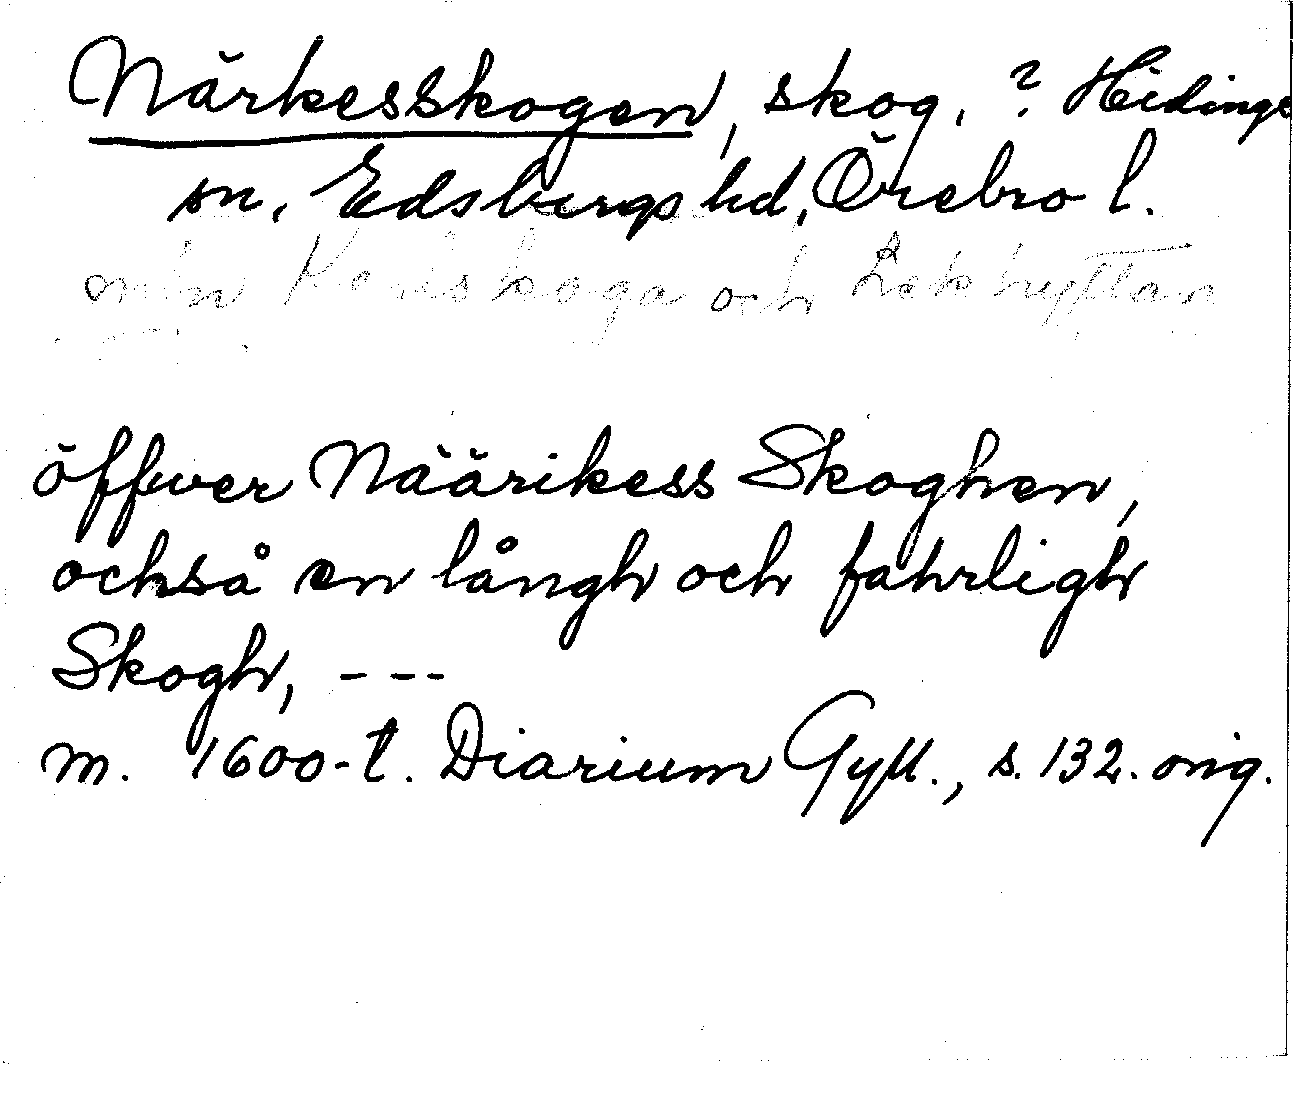 Närkesskogen, skog. ? Hidinge
sn. Edsbergs hd, Örebro l.
mln Karlskoga och Lekhyttan
öffwer Näärikess Skoghen,
också en långh och fahrligh
Skogh, ---
m. 1600-t. Diarium Gyll., s. 132. orig.